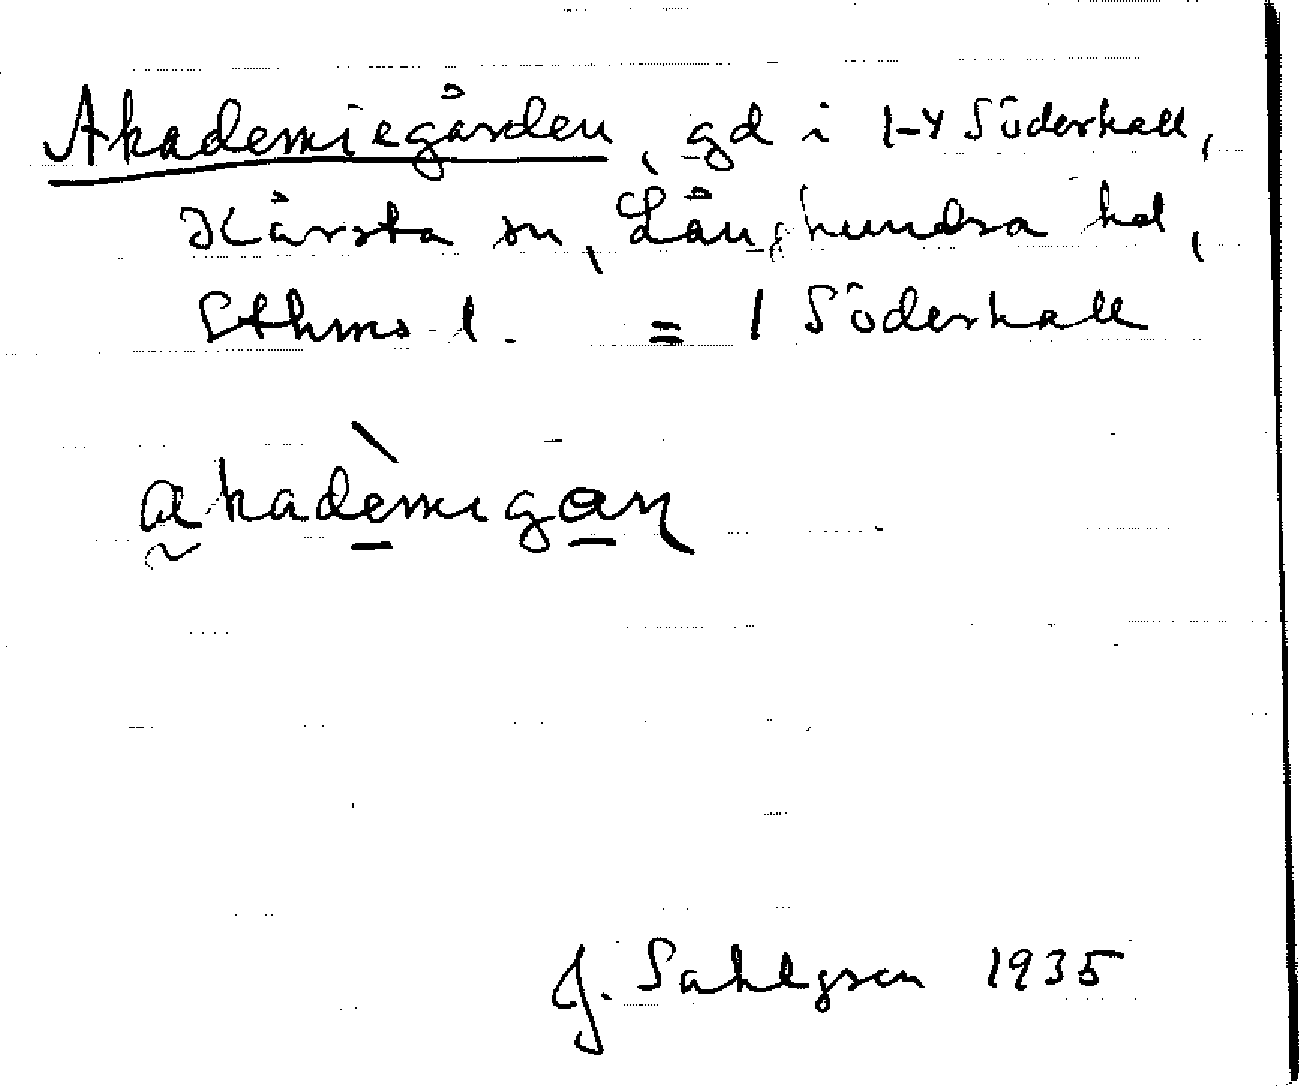 Akademiegården, gd i 1-4 Söderhall,
Kårsta sn, Långhundra hd,
Sthms l. = 1 Söderhall
akadèmigan
J. Sahlgren 1935